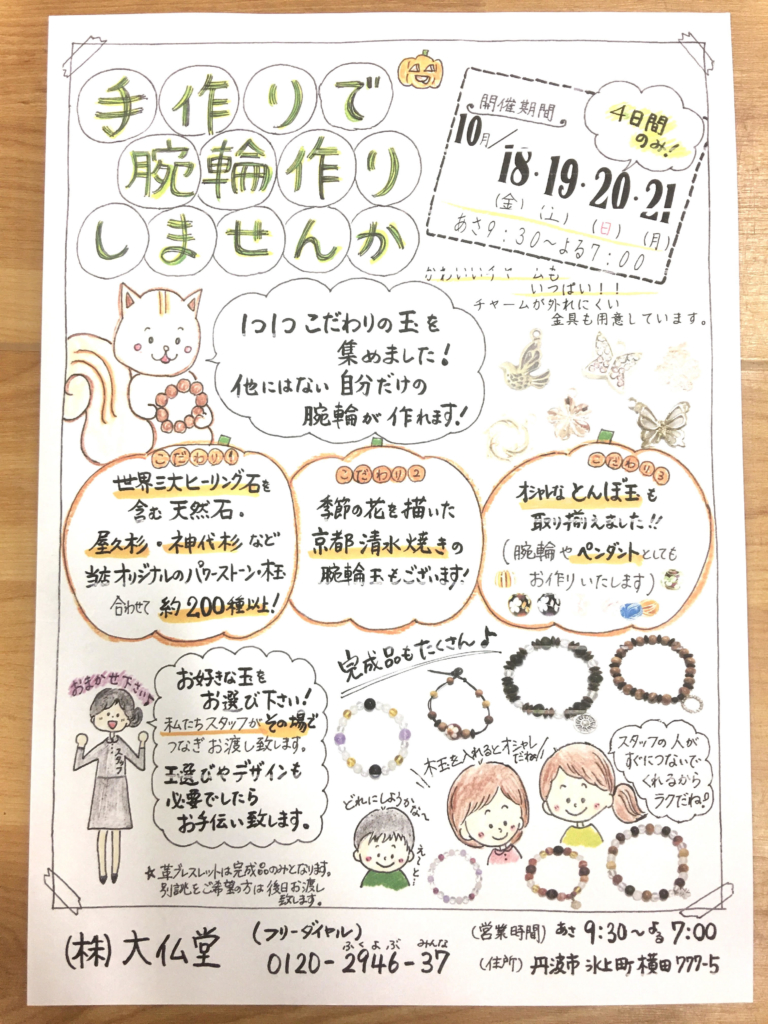 手作りで
腕輪作り
しませんか
開催期間
10月/18・19・20・21
(金) (土) (日) (月)
あさ9:30〜よる7:00
4日間
のみ!
かわいいチャームも
いっぱい!!
チャームが外れにくい
金具も用意しています。
1つ1つ こだわりの玉を
集めました!
他にはない 自分だけの
腕輪が 作れます!
こだわり1
世界三大ヒーリング石を
含む 天然石・
屋久杉・神代杉 など
当店オリジナルのパワーストーン・木玉
合わせて 約200種以上!
こだわり2
季節の花を描いた
京都 清水焼きの
腕輪玉もございます!
こだわり3
オシャレな とんぼ玉も
取り揃えました!!
(腕輪や ペンダントとしても
お作りいたします)
おまかせ下さい♪
スタッフ
お好きな玉を
お選び下さい!
私たちスタッフが その場で
つなぎ お渡し致します。
玉選びやデザインも
必要でしたら
お手伝い致します。
☆ 革ブレスレットは完成品のみとなります。
別誂をご希望の方は 後日お渡し
致します。
完成品もたくさん♪
木玉を入れるとオシャレ
だねぇ
どれにしようかな〜
え〜と…
スタッフの人が
すぐにつないで
くれるから
ラクだね♪
(株)大仏堂
(フリーダイヤル)
ふくよぶ みんな
0120-2946-37
(営業時間) あさ 9:30〜よる 7:00
(住所) 丹波市 氷上町 横田 777-5